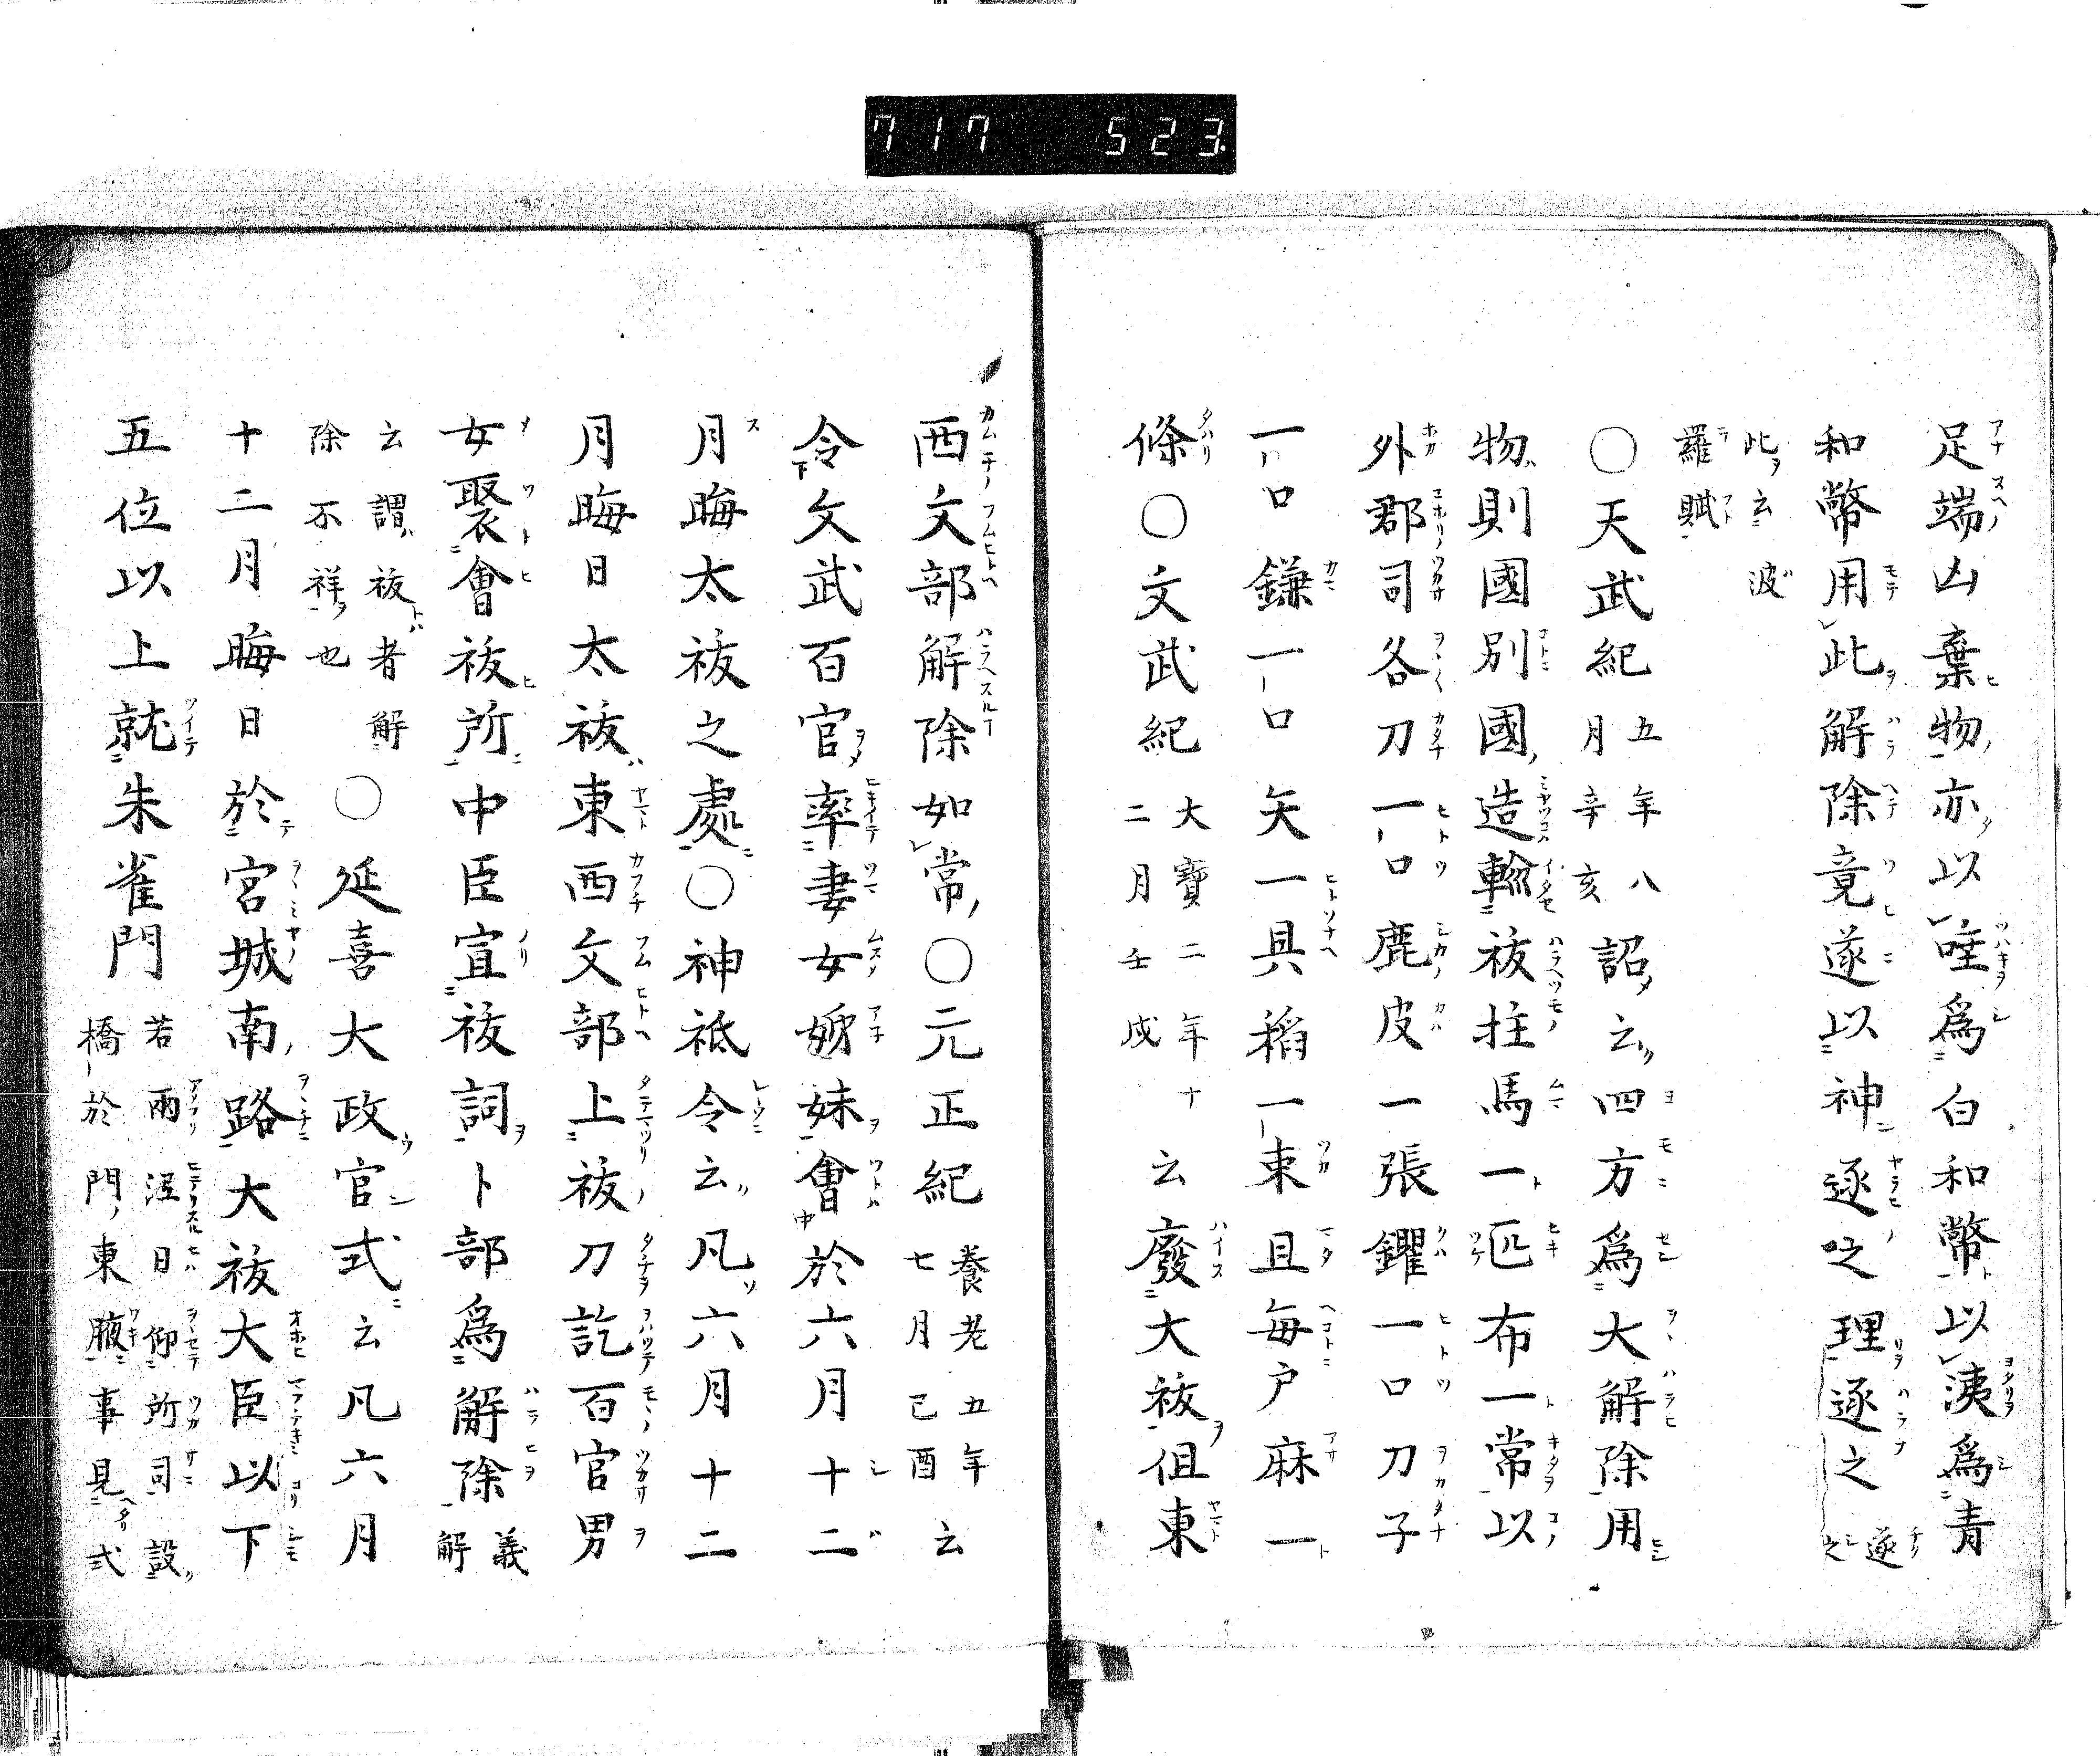 717 523
足端凶棄物亦以唾爲白和幣以洟爲青
和幣用此解除竟遂以神逐之理逐之逐之
此云波
羅賦
○天武紀五年八月辛亥詔云四方爲大解除用
物則國別國造輸祓柱馬一匹布一常以
外郡司各刀一口鹿皮一張钁一口刀子
一口鎌一口矢一具稻一束且毎戸麻一
條○文武紀大寶二年十二月壬戌云廢大祓但東
西文部解除如常○元正紀養老五年七月己酉云
令文武百官率妻女姊妹會於六月十二
月晦太祓之處○神祇令云凡六月十二
月晦日太祓東西文部上祓刀訖百官男
女聚會祓所中臣宣祓詞卜部爲解除義解
云謂祓者解
除不祥也
○延喜大政官式云凡六月
十二月晦日於宮城南路大祓大臣以下
五位以上就朱雀門若雨泥日仰所司設
橋於門東腋事見式